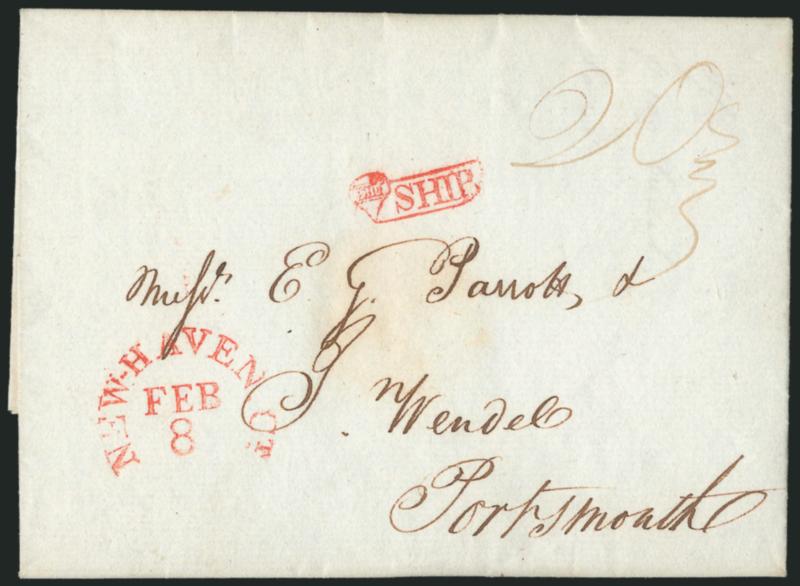 20
SHIP
Messrs. E G. Parrott, &
NEW-HAVEN CT.
FEB
8
J. Wendel
Portsmouth